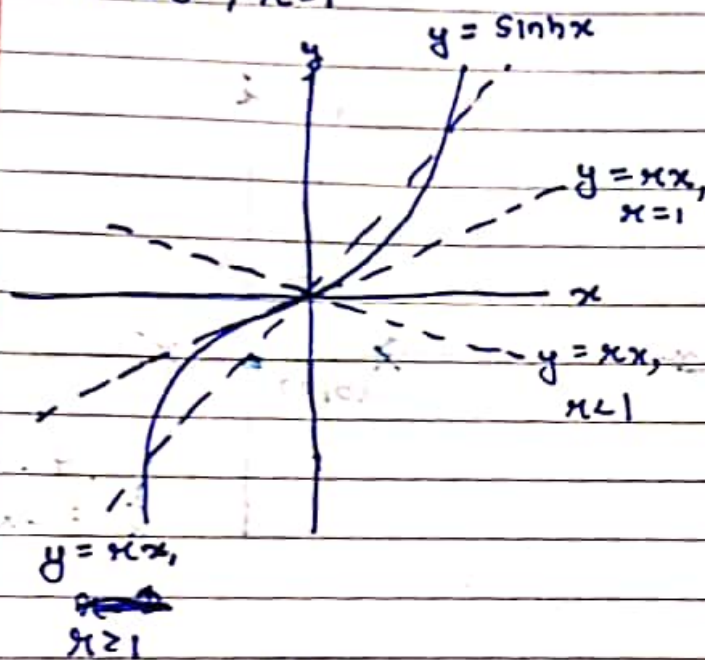 y = sinhx
y
y = rx,
r=1
x
y = rx,
r<1
y = rx,
r>1